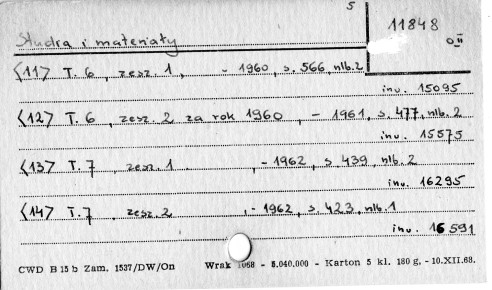 5
11848
0 II
Studia i materiały
<11> T. 6, zesz. 1, - 1960, s. 566, nlb. 2
inv. 15095
<12> T. 6, zesz. 2 za rok 1960, - 1961, s. 477, nlb. 2
inv. 15575
<13> T. 7, zesz. 1, - 1962, s 439, nlb. 2
inv. 16295
<14> T. 7, zesz. 2, - 1962, s. 423, nlb. 1
inv. 16591
CWD B 15 b Zam. 1537/DW/On Wrak 1068 - 5.040.000 - Karton 5 kl. 180 g, - 10.XII.68.